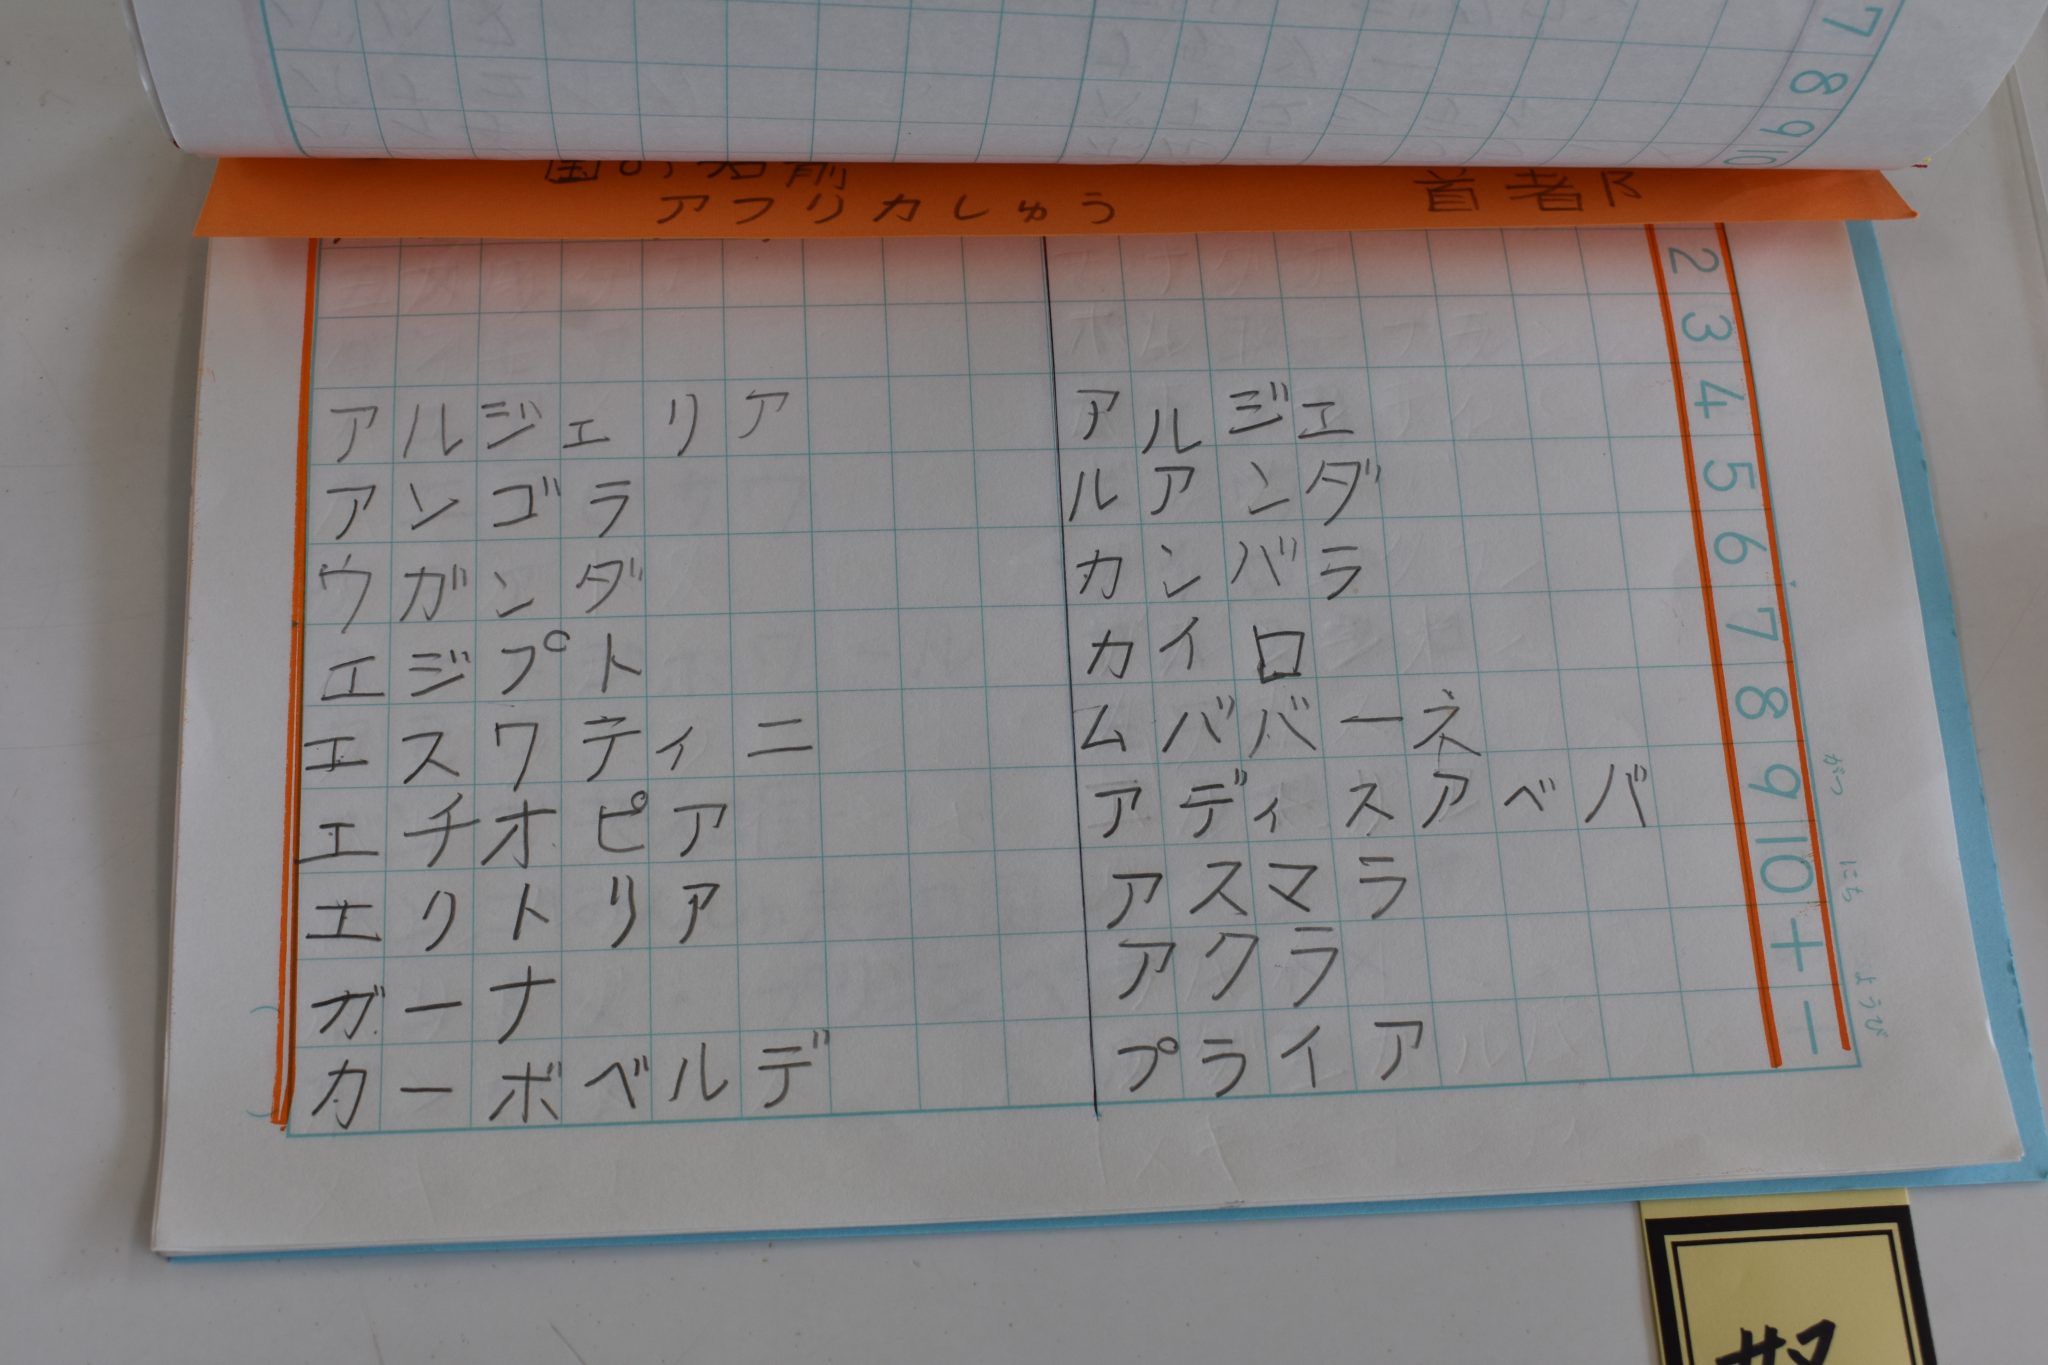 7
8
9
10
国の名前
アフリカしゅう
首者B
2
3
アルジェリア アルジェ 4
アンゴラ ルアンダ 5
ウガンダ カンバラ 6
エジプト カイロ 7
エスワティニ ムババーネ 8
エチオピア アディスアベバ 9
エリトリア アスマラ 10
ガーナ アクラ +
カーボベルデ プライア −
がつ にち ようび